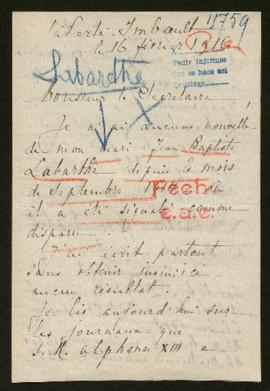 11759
La Ferté-Imbault
le 16 février 1916
Pedir informes
Labarthe
Monsieur le Secrétaire
Je n'ai aucune nouvelle
de mon mari Jean Baptiste
Labarthe depuis le mois
de Septembre où
Fecho
il a été signalé comme
c.a.c.
disparu.
J'ai écrit partout
sans obtenir jusqu'ici
aucun résultat.
Je lis aujourd'hui sur
les journaux que
S. M. Alphonse XIII a